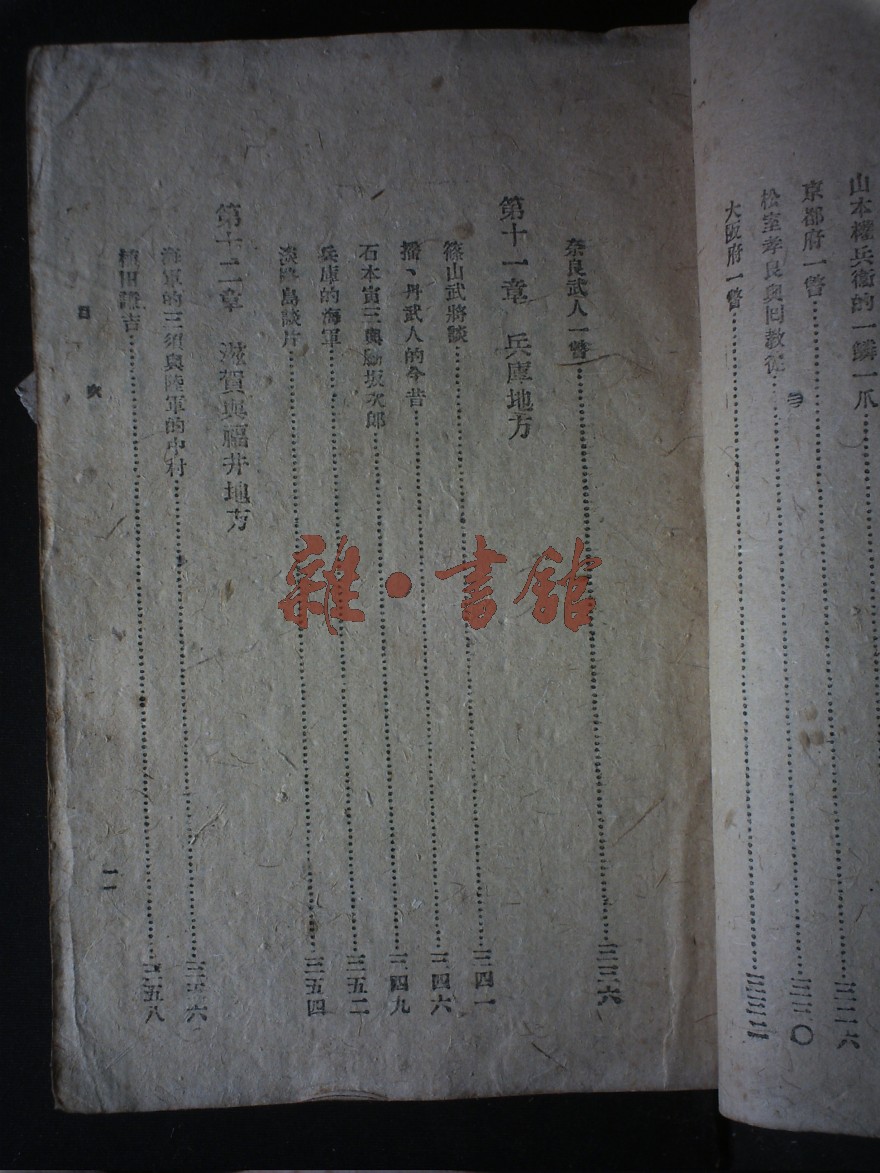 山本權兵衛的一鱗一爪……三二六
京都府一瞥……三三〇
松室孝良與旧教徒……
大阪府一瞥……三三三
奈良武人一瞥……三三六
第十一章　兵庫地方
篠山武將談……三四一
播、丹武人的今昔……三四六
石本寅三與勝坂次郎……三四九
兵庫的海軍……三五二
淡路島談片……三五四
第十二章　滋賀與福井地方
海軍的三須與陸軍的中村……三五六
植田謙吉……三五八
目　次
一一
雜·書館